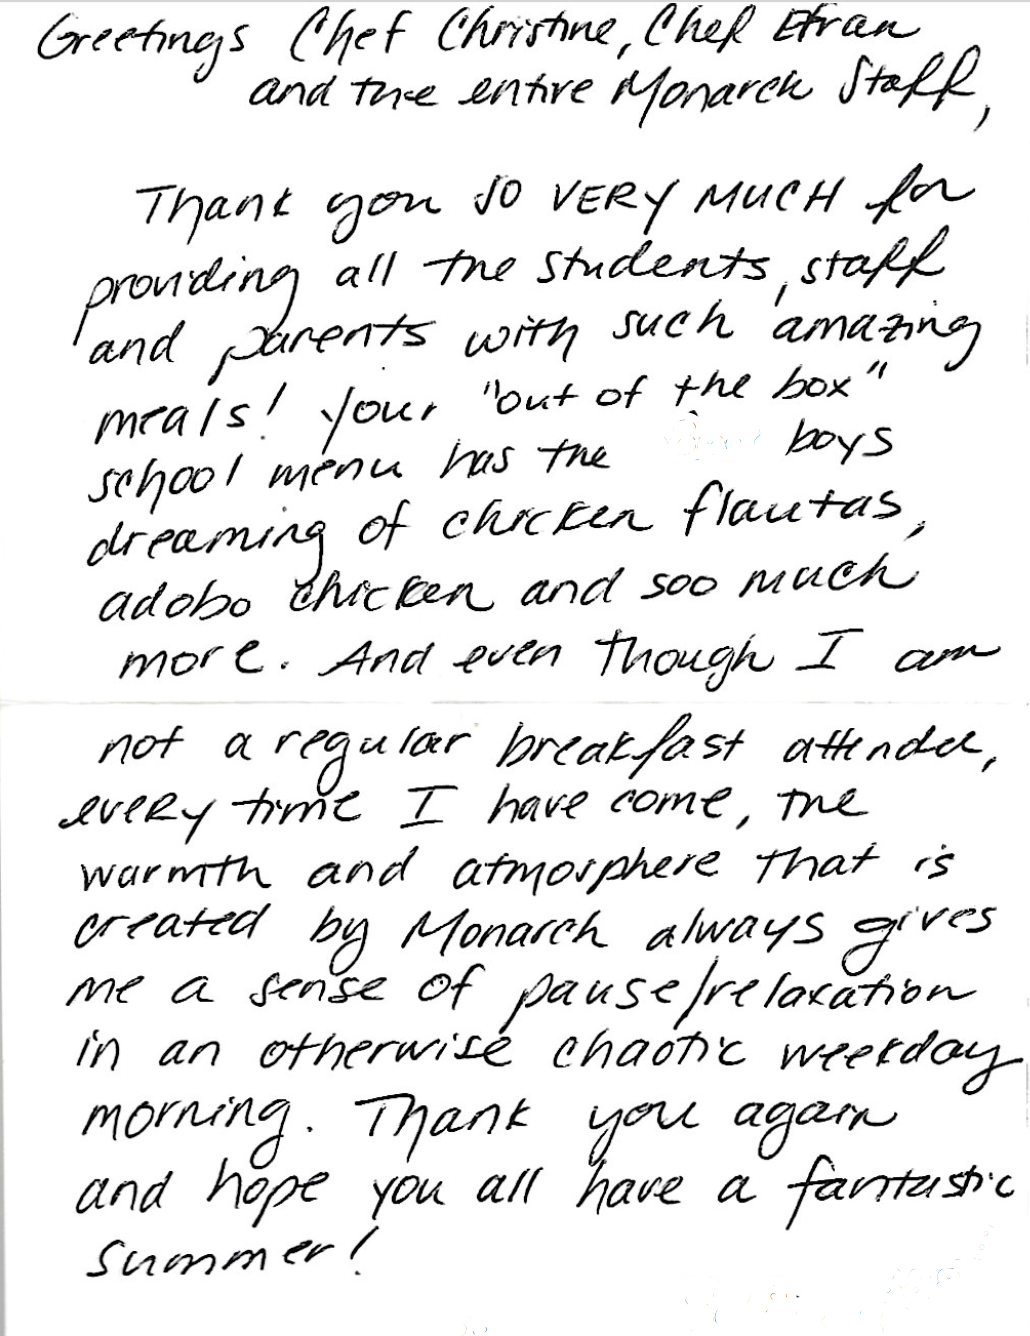 Greetings Chef Christine, Chef Efran
and the entire Monarch Staff,
Thank you SO VERY MUCH for
providing all the students, staff
and parents with such amazing
meals! Your "out of the box"
school menu has the boys
dreaming of chicken flautas,
adobo chicken and soo much
more. And even though I am
not a regular breakfast attendee,
every time I have come, the
warmth and atmosphere that is
created by Monarch always gives
me a sense of pause/relaxation
in an otherwise chaotic weekday
morning. Thank you again
and hope you all have a fantastic
summer!